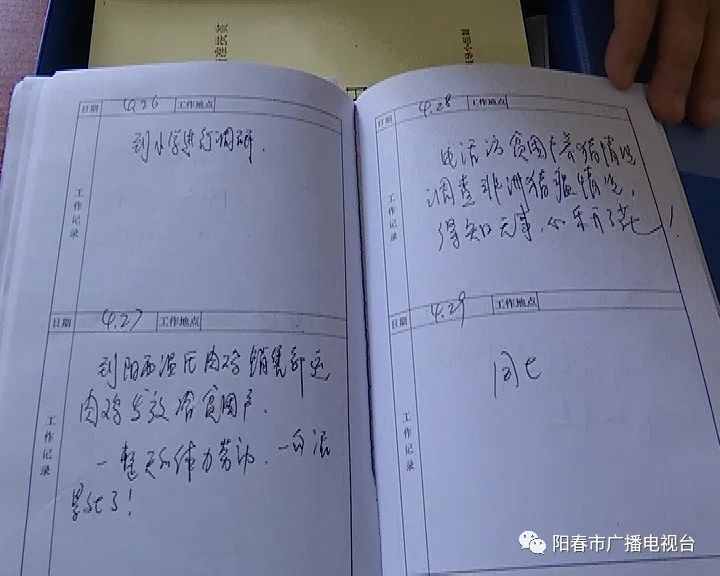 日期 4.26 工作地点
工作记录
到小学进行调研.
日期 4.27 工作地点
工作记录
到阳西温氏肉鸡销售部运
肉鸡发放给贫困户.
一整天的体力劳动,一句话
累死了!
日期 4.28 工作地点
工作记录
电话访贫困户养猪情况
调查非洲猪瘟情况,
得知无事,心乐开了花!
日期 4.29 工作地点
工作记录
同上
阳春市广播电视台